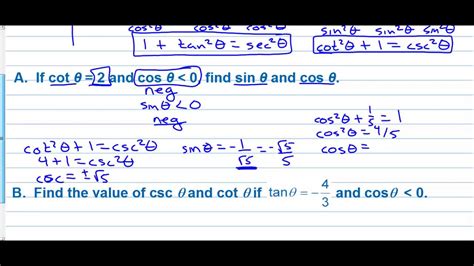 cos²θ cos²θ cos²θ sin²θ sin²θ sin²θ
1 + tan²θ = sec²θ cot²θ + 1 = csc²θ
A. If cot θ = 2 and cos θ < 0, find sin θ and cos θ.
neg
sin θ < 0
neg
cot²θ + 1 = csc²θ
4 + 1 = csc²θ
csc = ±√5
sin θ = -1/√5 = -√5/5
cos²θ + 1/5 = 1
cos²θ = 4/5
cos θ =
B. Find the value of csc θ and cot θ if tan θ = -4/3 and cos θ < 0.